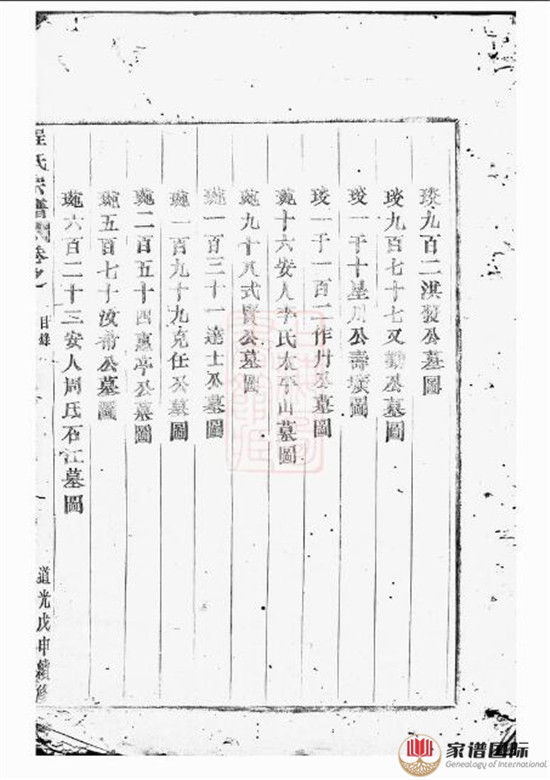 琰九百二淇發公墓圖
琰九百七十七又勤公墓圖
琰一千十星川公壽塋圖
琰一千一百一作舟公墓圖
琬十六安人李氏太平山墓圖
琬九十八式賢公墓圖
琬一百三十一達士公墓圖
琬一百九十九克任公墓圖
琬二百五十四惠亭公墓圖
琬五百七十波公墓圖
琬六百二十三安人周氏石江墓圖
氏宗譜 卷之
目錄
道光戊申續修
家谱国际
Genealogy of International